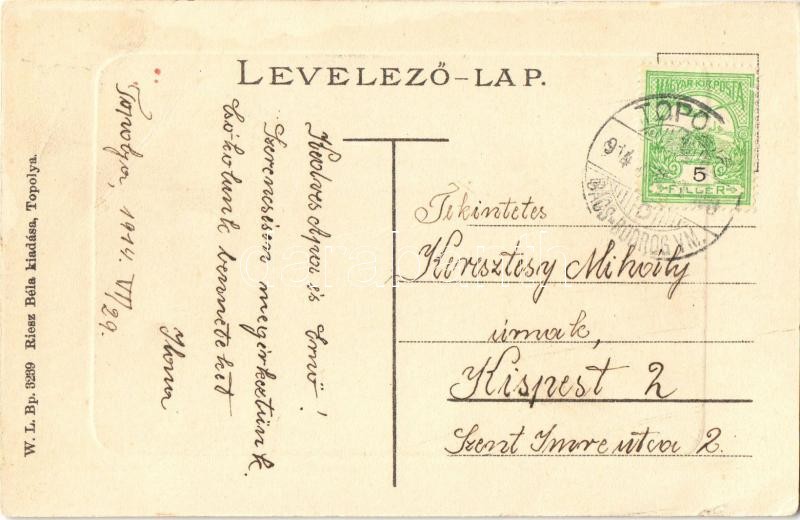 LEVELEZŐ-LAP.
MAGYAR KIR. POSTA
5
FILLÉR
TOPO
914
BÁCS-BODROG VM.
Tekintetes
Keresztesy Mihály
úrnak,
Kispest 2
Szent Imre utca 2.
Kedves Apa és Ernő!
Szerencsésen megérkeztünk.
Csókolunk benneteket
Ilona
Topolya, 1914. VII/29.
W. L. Bp. 3239 Riesz Béla kiadása, Topolya.